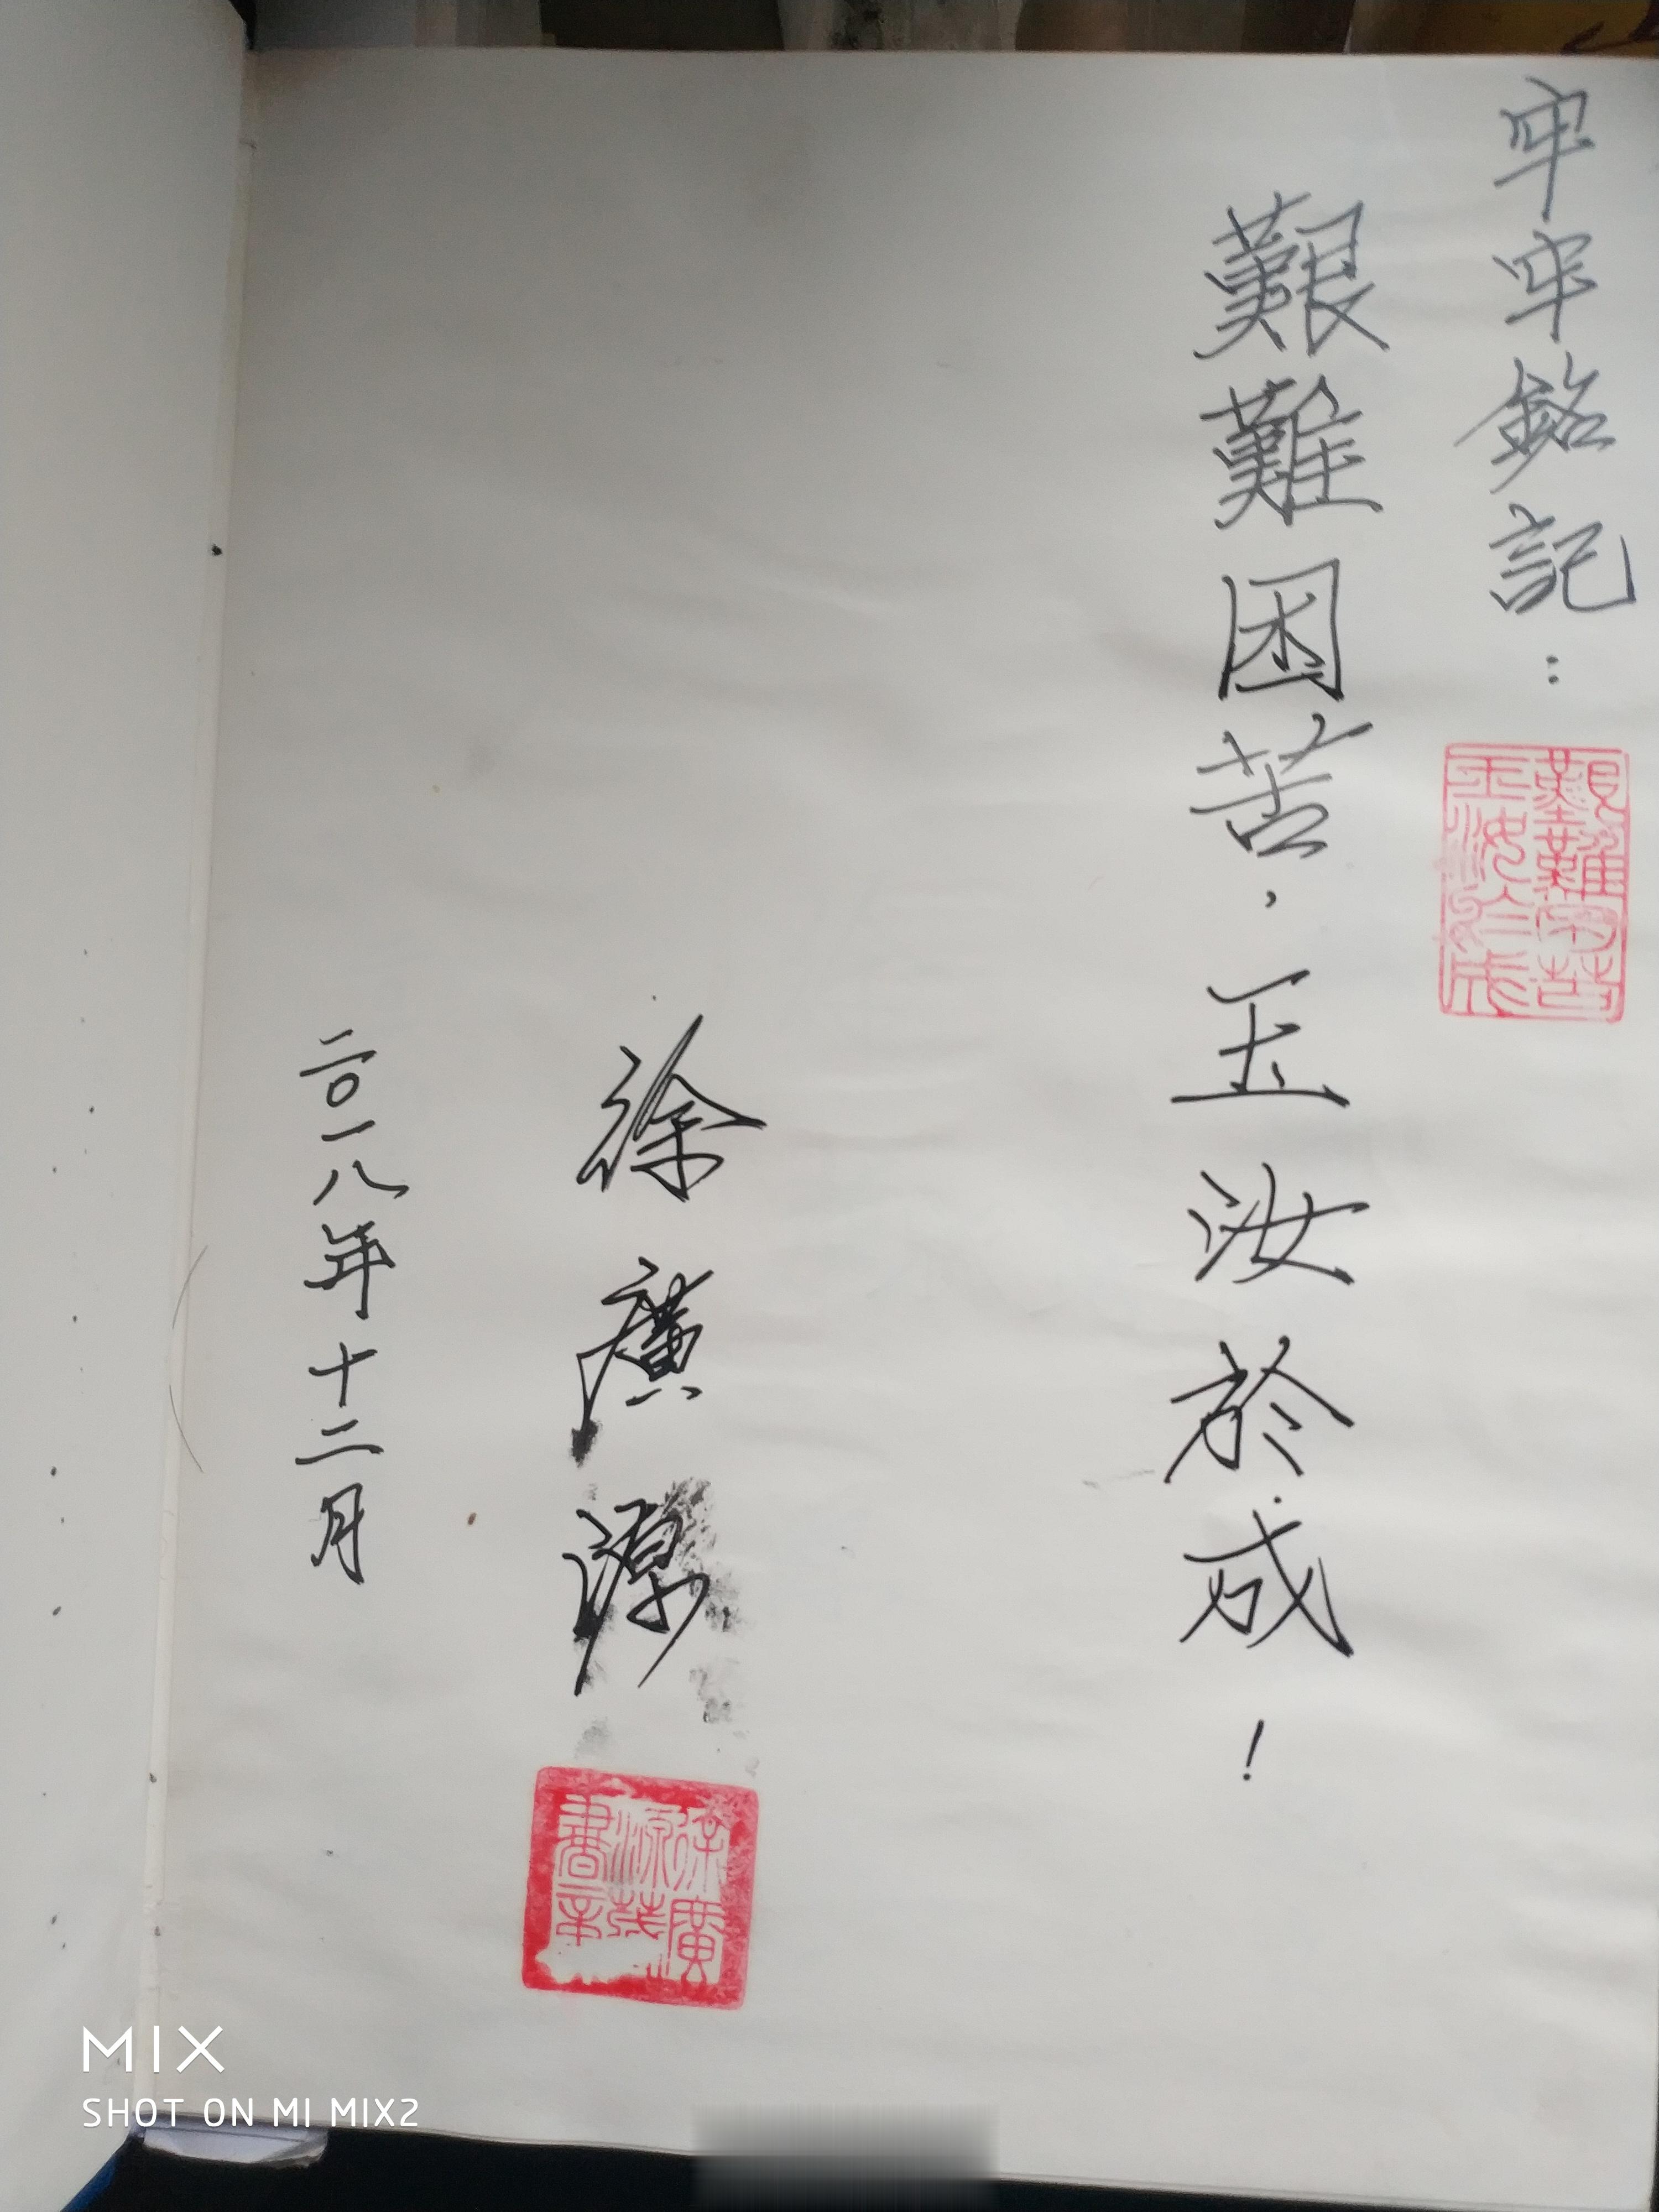 牢牢銘記：
艱難困苦
玉汝於成
艱難困苦，玉汝於成！
徐廣源
徐廣
源藏
書章
二〇一八年十二月
MIX
SHOT ON MI MIX2